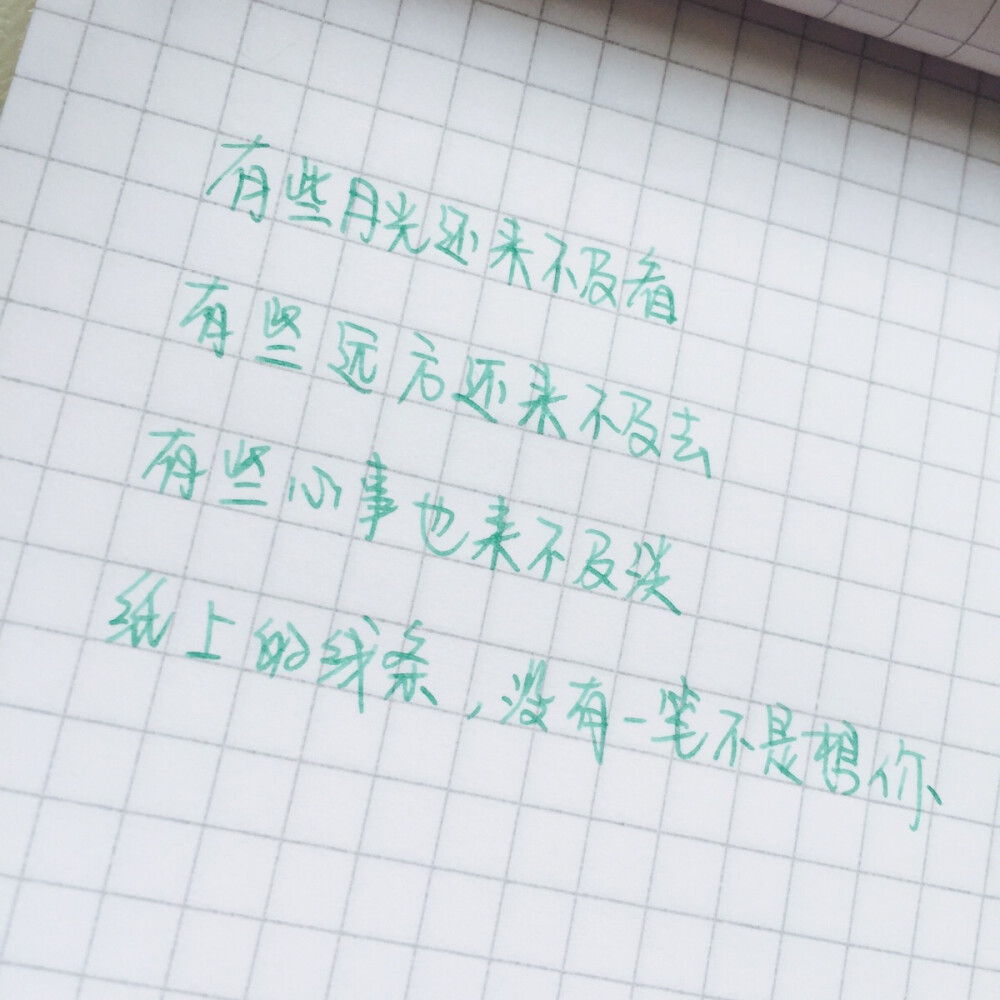 有些月光还来不及看
有些远方还来不及去
有些小事也来不及谈
纸上的线条，没有一笔不是想你